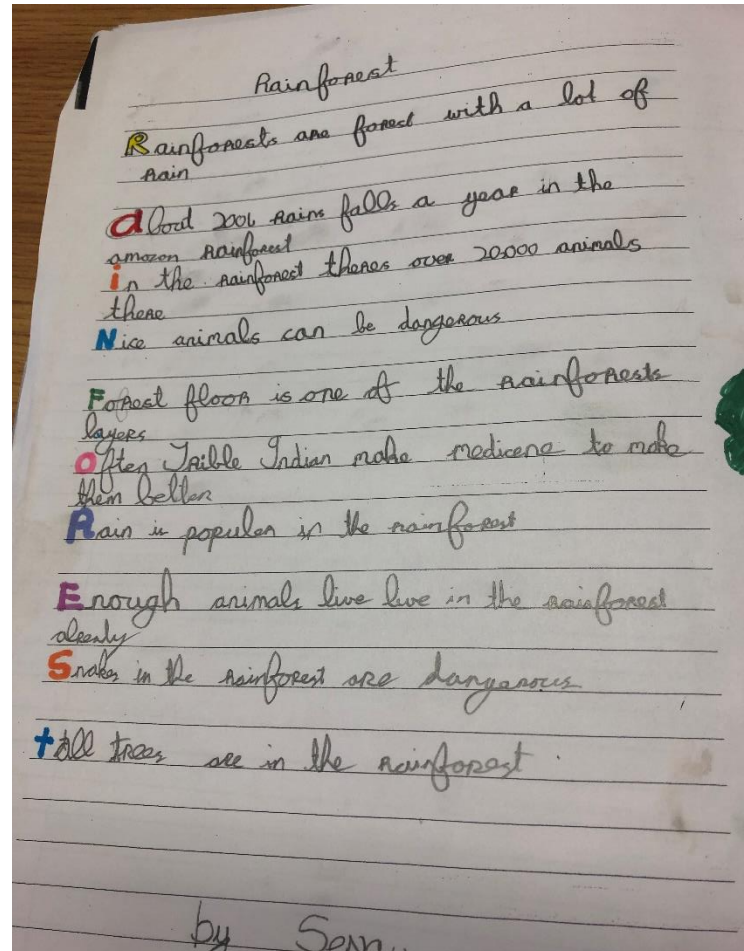 Rainforest
Rainforests are forest with a lot of
rain
about 200L rains falls a year in the
amazon rainforest
in the rainforest theres over 20000 animals
there
Nice animals can be dangerous
Forest floor is one of the rainforests
layers
Often Trible Indian make medicene to make
them better
Rain is populer in the rainforest
Enough animals live live in the rainforest
alrealy
Snakes in the rainforest are dangarous
tall trees are in the rainforest
by